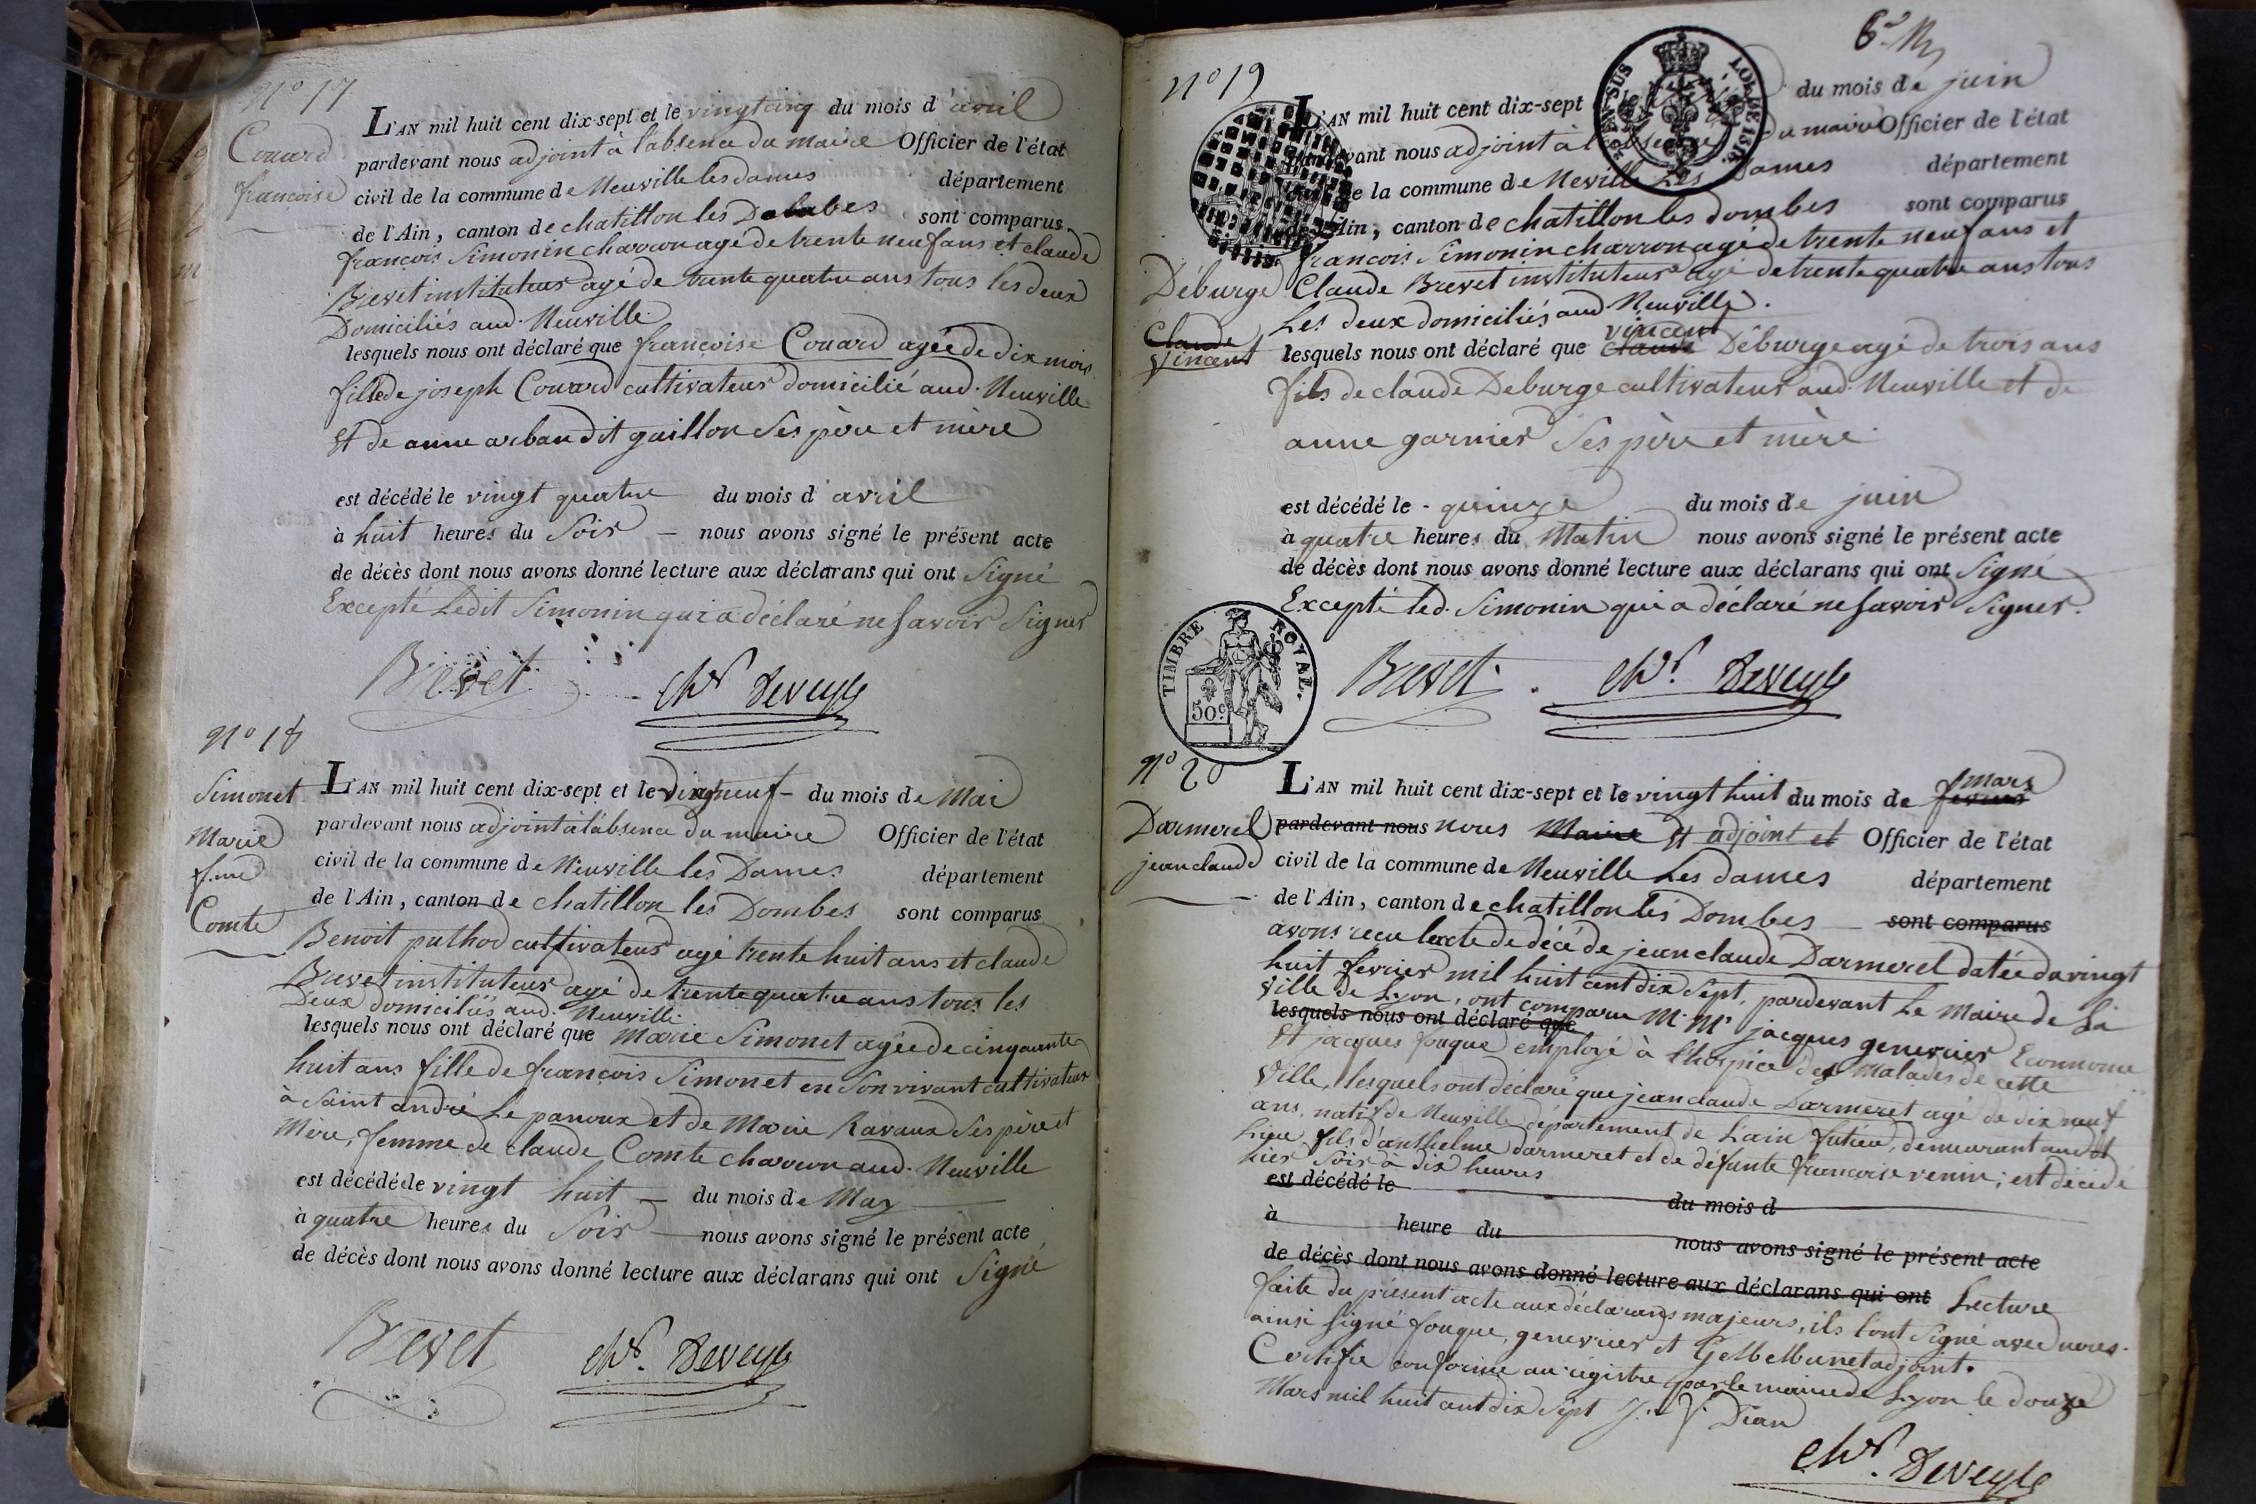 N.o 17
Couard
françoise
L'AN mil huit cent dix-sept et le vingtcinq du mois d'avril
pardevant nous adjoint à l'absence du maire Officier de l'état
civil de la commune de Neuville les dames département
de l'Ain, canton de chatillon les Dombes sont comparus
françois Simonin charron agé de trente neuf ans et claude
Brevet instituteur agé de trente quatre ans tous les deux
Domiciliés aud. Neuville
lesquels nous ont déclaré que françoise Couard agée de dix mois
fille de joseph Couard cultivateur domicilié aud. Neuville
Et de anne arband it guillon Ses père et mère
est décédé le vingt quatre du mois d'avril
à huit heures du Soir — nous avons signé le présent acte
de décès dont nous avons donné lecture aux déclarans qui ont Signé
Excepté Ledit Simonin qui a déclaré ne Savoir Signer
Brevet chr. Deveyle
N.o 18
Simonet
Marie
f.me
Comte
L'AN mil huit cent dix-sept et le vingtneuf — du mois de Mai
pardevant nous adjoint à l'absence du maire Officier de l'état
civil de la commune de Neuville les Dames département
de l'Ain, canton de chatillon les Dombes sont comparus
Benoit puthod cultivateur agé trente huit ans et claude
Brevet instituteur agé de trente quatre ans tous les
Deux domiciliés aud. Neuville
lesquels nous ont déclaré que Marie Simonet agée de cinquante
huit ans fille de françois Simonet en Son vivant cultivateur
à Saint andré Le panoux et de Marie Ravaux Ses père et
Mère, femme de claude Comte charron aud. Neuville
est décédé le vingt huit — du mois de May
à quatre heures du Soir — nous avons signé le présent acte
de décès dont nous avons donné lecture aux déclarans qui ont Signé
Brevet chr. Deveyle
N.o 19
Déburge
Claude
Vincent
EN SUS
LOI DE 1816.
L'AN mil huit cent dix-sept du mois de juin
pardevant nous adjoint à l'absence du maire Officier de l'état
de la commune de Neville Les Dames département
de l'Ain, canton de chatillon les dombes sont comparus
francois Simonin charron agé de trente neuf ans et
Claude Brevet instituteur agé de trente quatre ans tous
Les deux domiciliés aud Neuville.
vincent
lesquels nous ont déclaré que claude Déburge agé de trois ans
fils de claude Deburge cultivateur aud. Neuville et de
anne garnier Ses père et mère.
est décédé le - quinze du mois de juin
à quatre heures du Matin nous avons signé le présent acte
de décès dont nous avons donné lecture aux déclarans qui ont Signé
Excepté led. Simonin qui a déclaré ne Savoir Signer.
TIMBRE ROYAL.
50c
Brevet. chr. Deveyle
N.o 20
Darmerel
jean claude
mars
L'AN mil huit cent dix-sept et le vingt huit du mois de fevrier
pardevant nous nous Maire et adjoint et Officier de l'état
civil de la commune de Neuville Les dames département
de l'Ain, canton de chatillon les Dombes — sont comparus
avons recu lacte de décé de jean claude Darmerel datée du vingt
huit février mil huit cent dix Sept, pardevant Le Maire de La
Ville de Lyon, ont comparu M. Mr jacques genevrier Econnome
lesquels nous ont déclaré que
Et jacques fouque employé à l'hospice des Malades de cette
Ville, lesquels ont déclaré que jean claude Darmeret agé de dix neuf
ans, natif de Neuville département de L'ain futier, demeurant audit
Lieu, fils d'anthelme darmeret et de défunte françoise venin; est décédé
hier Soir à dix heures
est décédé le du mois d
à heure du nous avons signé le présent acte
de décès dont nous avons donné lecture aux déclarans qui ont Lecture
faite du présent acte aux déclarans majeurs, ils l'ont Signé avec nous.
ainsi Signé fouque, genevrier et adjoint.
Certifié conforme au régistre par le maire de Lyon le douze
Mars mil huit cent dix Sept
chr. Deveyle